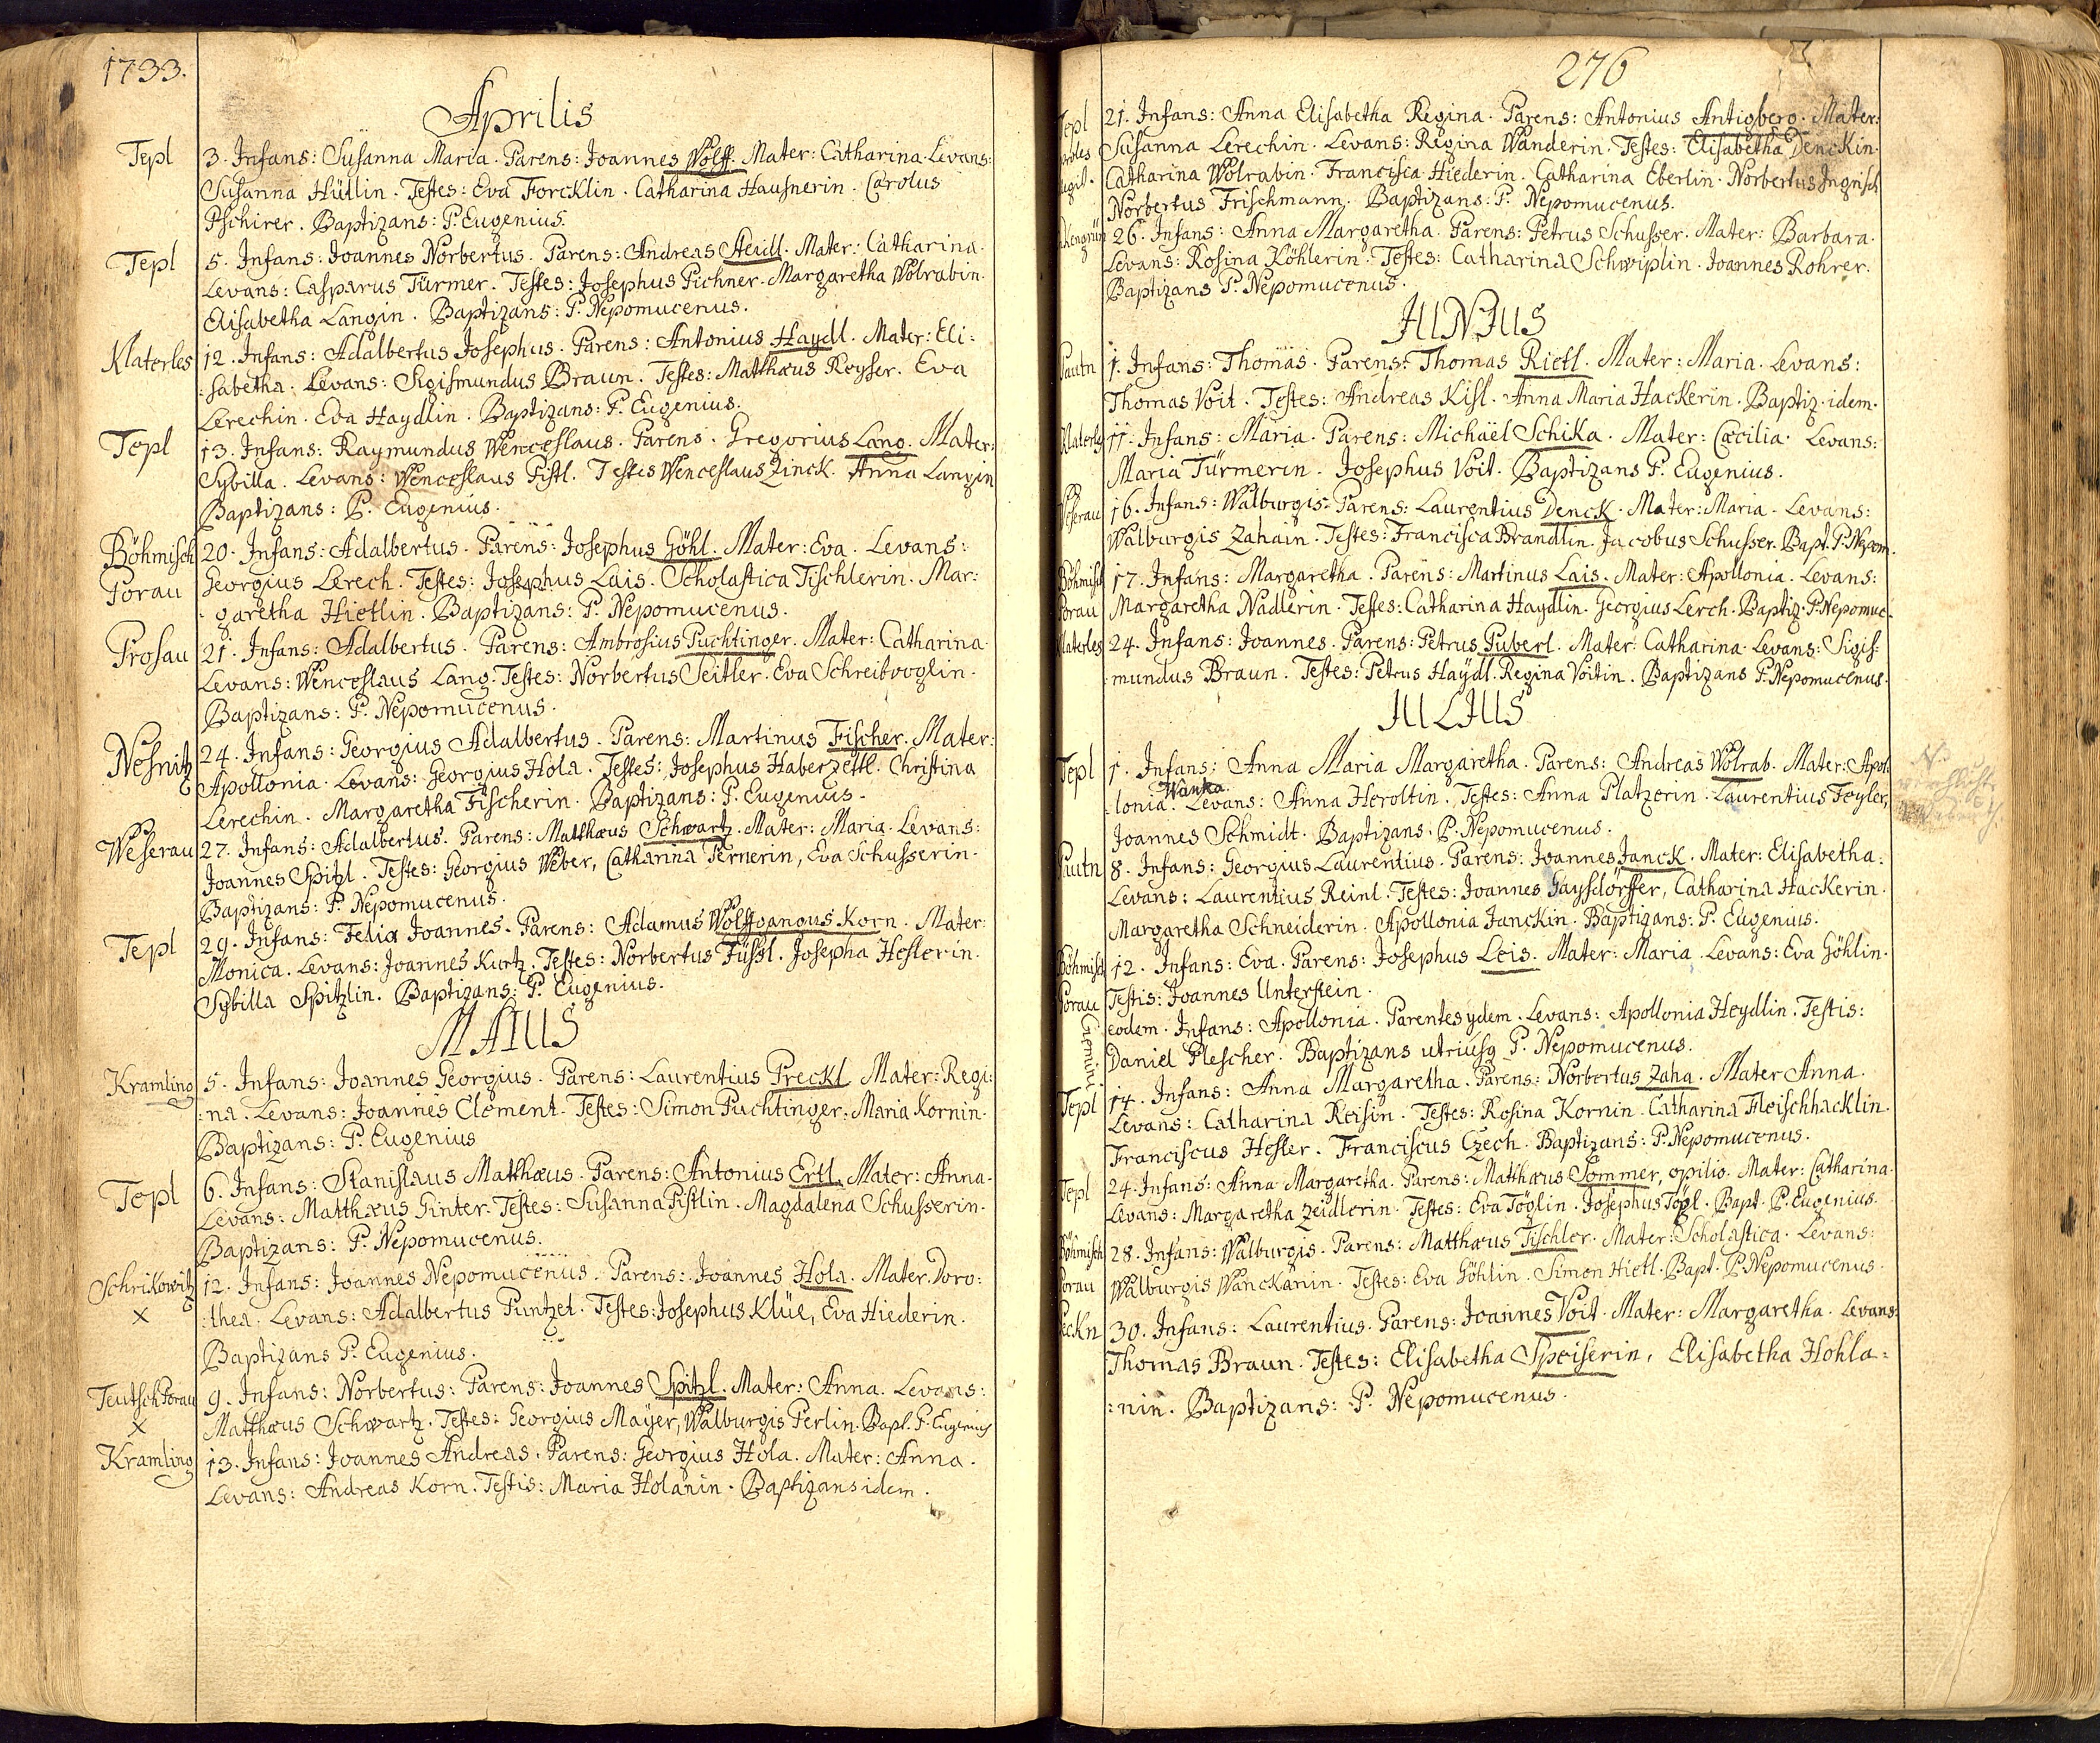 1733.
Aprilis
Tepl
3. Infans: Susanna Maria. Parens: Joannes Wolff. Mater: Catharina. Levans:
Susanna Hütlin. Testes: Eva Forcklin. Catharina Hausnerin. Carolus
Pschirer. Baptizans: P. Eugenius.
Tepl
5. Infans: Joannes Norbertus. Parens: Andreas Heidl. Mater: Catharina.
Levans: Casparus Türmer. Testes: Josephus Pichner. Margaretha Wolrabin.
Elisabetha Langin. Baptizans: P. Nepomucenus.
Klaterles
12. Infans: Adalbertus Josephus. Parens: Antonius Haydl. Mater: Eli:
:sabetha. Levans: Sigismundus Braun. Testes: Matthæus Reysser. Eva
Lerechin. Eva Haydlin. Baptizans: P. Eugenius.
Tepl
13. Infans: Raymundus Wenceslaus. Parens. Gregorius Lang. Mater:
Sybilla. Levans: Wenceslaus Fistl. Testes Wenceslaus Zinck. Anna Langin
Baptizans: P. Eugenius.
Böhmisch
Porau
20. Infans: Adalbertus. Parens: Josephus Göhl. Mater: Eva. Levans:
Georgius Lerech. Testes: Josephus Lais. Scholastica Tischlerin. Mar:
garetha Hietlin. Baptizans: P. Nepomucenus.
Prosau
21. Infans: Adalbertus. Parens: Ambrosius Puchtinger. Mater: Catharina.
Levans: Wenceslaus Lang. Testes: Norbertus Seitler. Eva Schreibvoglin.
Baptizans: P. Nepomucenus.
Nesnitz
24. Infans: Georgius Adalbertus. Parens: Martinus Fischer. Mater:
Apollonia. Levans: Georgius Hola. Testes: Josephus Haberzettl. Christina
Lerechin. Margaretha Fischerin. Baptizans: P. Eugenius.
Weserau
27. Infans: Adalbertus. Parens: Matthæus Schwartz. Mater: Maria. Levans:
Joannes Spitzl. Testes: Georgius Weber, Catharina Pernerin, Eva Schusserin.
Baptizans: P. Nepomucenus.
Tepl
29. Infans: Felix Joannes. Parens: Adamus Wolffgangus Korn. Mater:
Monica. Levans: Joannes Kurtz. Testes: Norbertus Füssl. Josepha Heslerin.
Sybilla Spitzlin. Baptizans: P. Eugenius.
MAIUS
Kramling
5. Infans: Joannes Georgius. Parens: Laurentius Preckl. Mater: Regi:
:na. Levans: Joannes Clement. Testes: Simon Puchtinger. Maria Kornin.
Baptizans: P. Eugenius
Tepl
6. Infans: Stanislaus Matthæus. Parens: Antonius Ertl. Mater: Anna.
Levans: Matthæus Ginter. Testes: Susanna Fistlin. Magdalena Schusserin.
Baptizans: P. Nepomucenus.
Schrikowitz
x
12. Infans: Joannes Nepomucenus. Parens: Joannes Hola. Mater. Doro:
:thea. Levans: Adalbertus Puntzet. Testes: Josephus Klüe, Eva Hiederin.
Baptizans P. Eugenius.
Teutsch Porau
x
9. Infans: Norbertus: Parens: Joannes Spitzl. Mater: Anna. Levans:
Matthæus Schwartz. Testes: Georgius Mayer, Walburgis Perlin. Bapt. P. Eugenius
Kramling
13. Infans: Joannes Andreas. Parens: Georgius Hola. Mater: Anna.
Levans: Andreas Korn. Testis: Maria Holanin. Baptizans idem.
276
Tepl
21. Infans: Anna Elisabetha Regina. Parens: Antonius Antigberg. Mater:
Susanna Lerechin. Levans: Regina Wanderin. Testes: Elisabetha Denckin.
Catharina Wolrabin. Francisca Hiederin. Catharina Eberlin. Norbertus Ingrisch
Norbertus Frischmann. Baptizans: P. Nepomucenus.
26. Infans: Anna Margaretha. Parens: Petrus Schusser. Mater: Barbara.
Levans: Rosina Köhlerin. Testes: Catharina Schwiplin. Joannes Rohrer.
Baptizans P. Nepomucenus.
JUNIUS
Pautn
1. Infans: Thomas. Parens: Thomas Rietl. Mater: Maria. Levans:
Thomas Voit. Testes: Andreas Kisl. Anna Maria Hackerin. Baptiz. idem.
11. Infans: Maria. Parens: Michaël Schika. Mater: Cæcilia. Levans:
Maria Türmerin. Josephus Voit. Baptizans P. Eugenius.
Weserau
16. Infans: Walburgis. Parens: Laurentius Denck. Mater: Maria. Levans:
Walburgis Zahain. Testes: Francisca Brandlin. Jacobus Schusser. Bapt. P. Nepom.
Böhmisch
Porau
17. Infans: Margaretha. Parens: Martinus Lais. Mater: Apollonia. Levans:
Margaretha Nadlerin. Testes: Catharina Haydlin. Georgius Lerch. Baptiz. P. Nepomuc.
Klaterles
24. Infans: Joannes. Parens: Petrus Puberl. Mater: Catharina. Levans: Sigis:
:mundus Braun. Testes: Petrus Haydl. Regina Voitin. Baptizans P. Nepomucenus.
JULIUS
Tepl
1. Infans: Anna Maria Margaretha. Parens: Andreas Wolrab. Mater: Apol
Wanka
lonia. Levans: Anna Heroltin. Testes: Anna Platzerin. Laurentius Feyler,
Joannes Schmidt. Baptizans. P. Nepomucenus.
Pautn
8. Infans: Georgius Laurentius. Parens: Joannes Janck. Mater: Elisabetha.
Levans: Laurentius Reinl. Testes: Joannes Gaysdörffer, Catharina Hackerin.
Margaretha Schneiderin. Apollonia Janckin. Baptizans: P. Eugenius.
Böhmisch
Porau
12. Infans: Eva. Parens: Josephus Leis. Mater: Maria. Levans: Eva Göhlin.
Testis: Joannes Unterstein.
Gemini
eodem. Infans: Apollonia. Parentes ydem. Levans: Apollonia Heydlin. Testis:
Daniel Plescher. Baptizans utriusq P. Nepomucenus.
Tepl
14. Infans: Anna Margaretha. Parens: Norbertus Zaha. Mater Anna.
Levans: Catharina Reisin. Testes: Rosina Kornin. Catharina Fleischhacklin.
Franciscus Hesler. Franciscus Czech. Baptizans: P. Nepomucenus.
Tepl
24. Infans: Anna Margaretha. Parens: Matthæus Sommer, opilio. Mater: Catharina.
Levans: Margaretha Zeidlerin. Testes: Eva Töglin. Josephus Töpl. Bapt. P. Eugenius.
Böhmisch
Porau
28. Infans: Walburgis. Parens: Matthæus Tischler. Mater: Scholastica. Levans:
Walburgis Wanckanin. Testes: Eva Göhlin. Simon Hietl. Bapt. P. Nepomucenus.
30. Infans: Laurentius. Parens: Joannes Voit. Mater: Margaretha. Levans:
Thomas Braun. Testes: Elisabetha Speiserin, Elisabetha Hohla:
:nin. Baptizans: P. Nepomucenus.